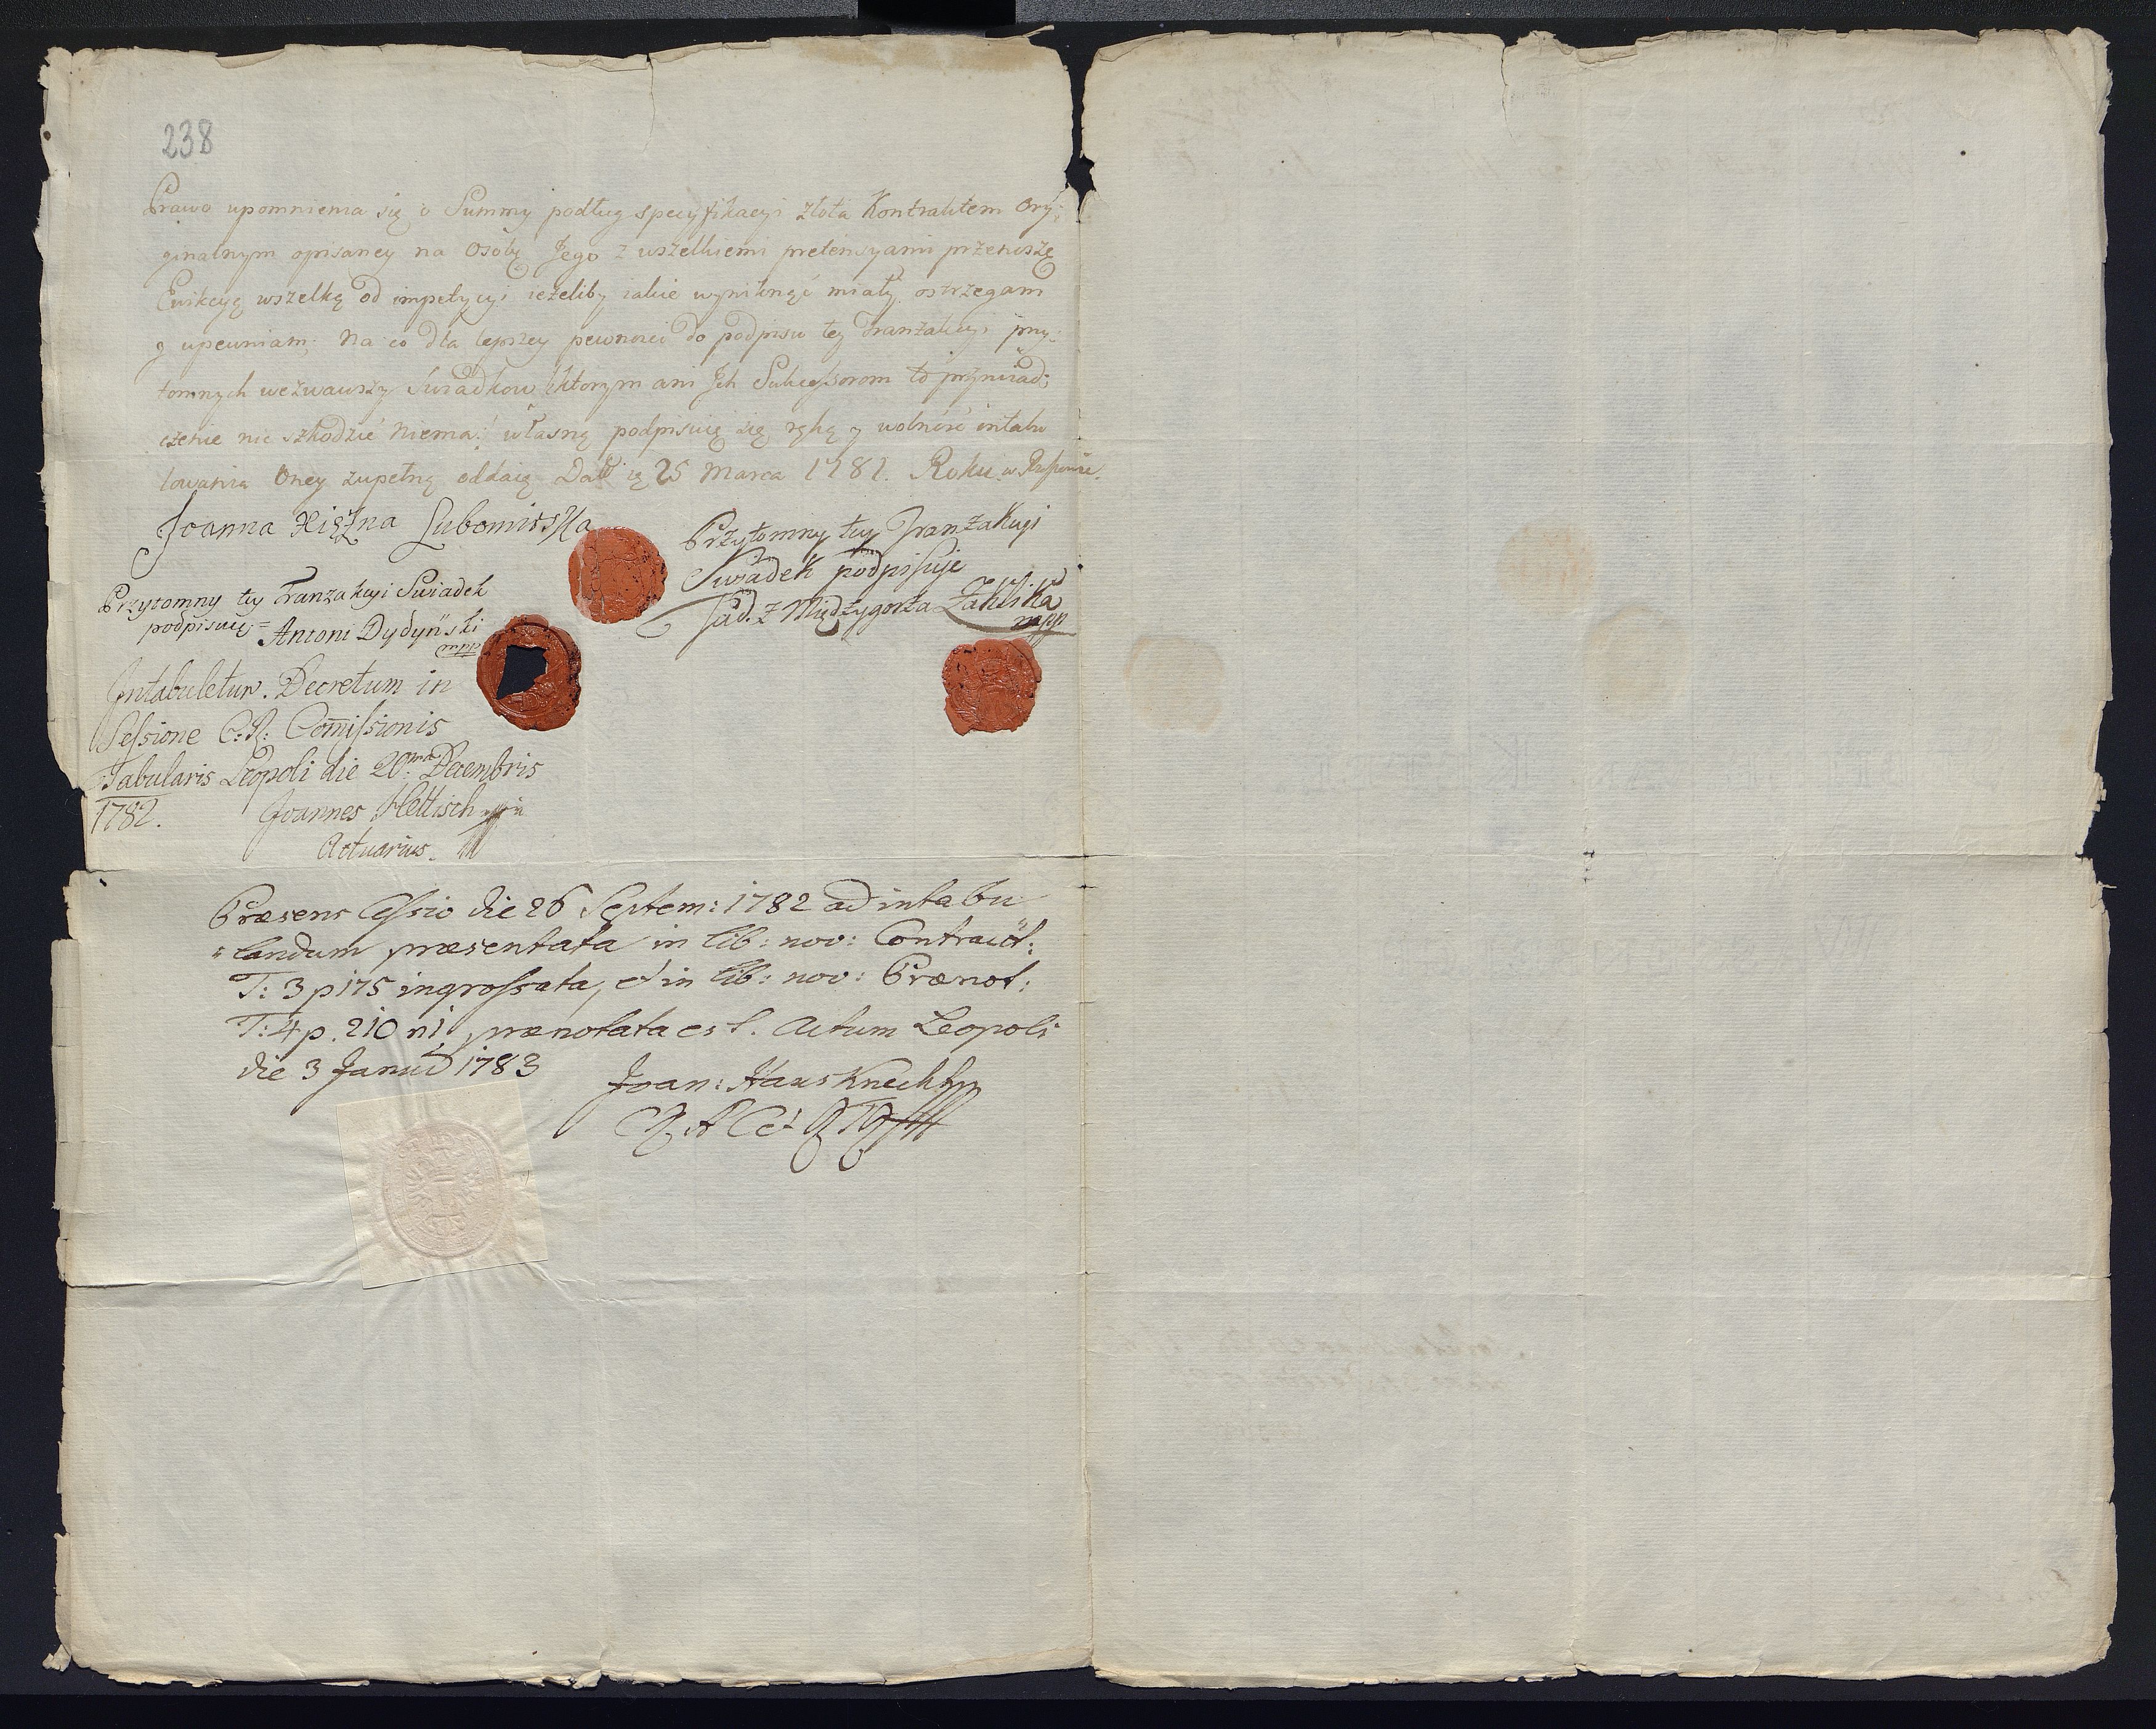 238
Prawo upomnienia się o Summy podług specyfikacyi złota Kontraktem Ory:
ginalnym opisaney na Osobę Jego z wszelkiemi pretensyami przenoszę
Ewikcyą wszelką od impetycyi ieżeliby iakie wyniknąć miały ostrzegam
y upewniam; Na co dla lepszey pewności do podpisu tey Tranzakcyi przy:
tomnych wezwawszy Swiadkow ktorym ani Jch Sukcessorom to przyświad:
czenie nic szkodzić niema: własną podpisuię się ręką y wolność intabu
lowania Oney zupełną oddaię Dat 25 Marca 1781. Roku w
Joanna Xiężna Lubomirska
Przytomny tey Tranzakcyi
Swiadek podpisuje
z Międzygorza Zaklika
mpp
Przytomny tey Tranzakcyi Swiadek
podpisuię = Antoni Dydyński
mpp
Intabuletur. Decretum in
Sessione C: R: Comissionis
Tabularis Leopoli die 20ma Decembris
1782. Joannes Hettisch
Actuarius.
Præsens Cessio die 26 Septem: 1782 ad intabu
landum præsentata in lib: nov: Contract:
T: 3 p 175 ingrossata, et in lib: nov: Prænot:
T: 4 p. 210 n1 prænotata est. Actum Leopoli
die 3 Januar 1783
Joan: Hausknecht